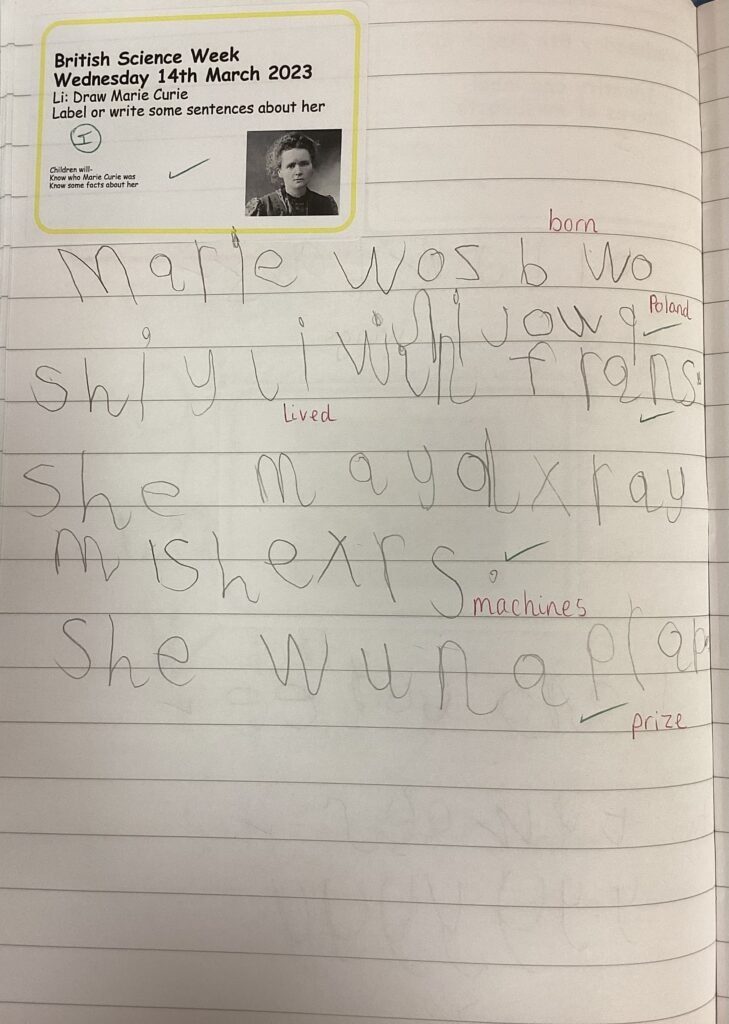 British Science Week
Wednesday 14th March 2023
Li: Draw Marie Curie
Label or write some sentences about her
I
Children will-
Know who Marie Curie was
Know some facts about her
born
Marie wos b wo
Poland
shi y li with frans
lived
She mayd x ray
mishexrs.
machines
She wun a prap
prize